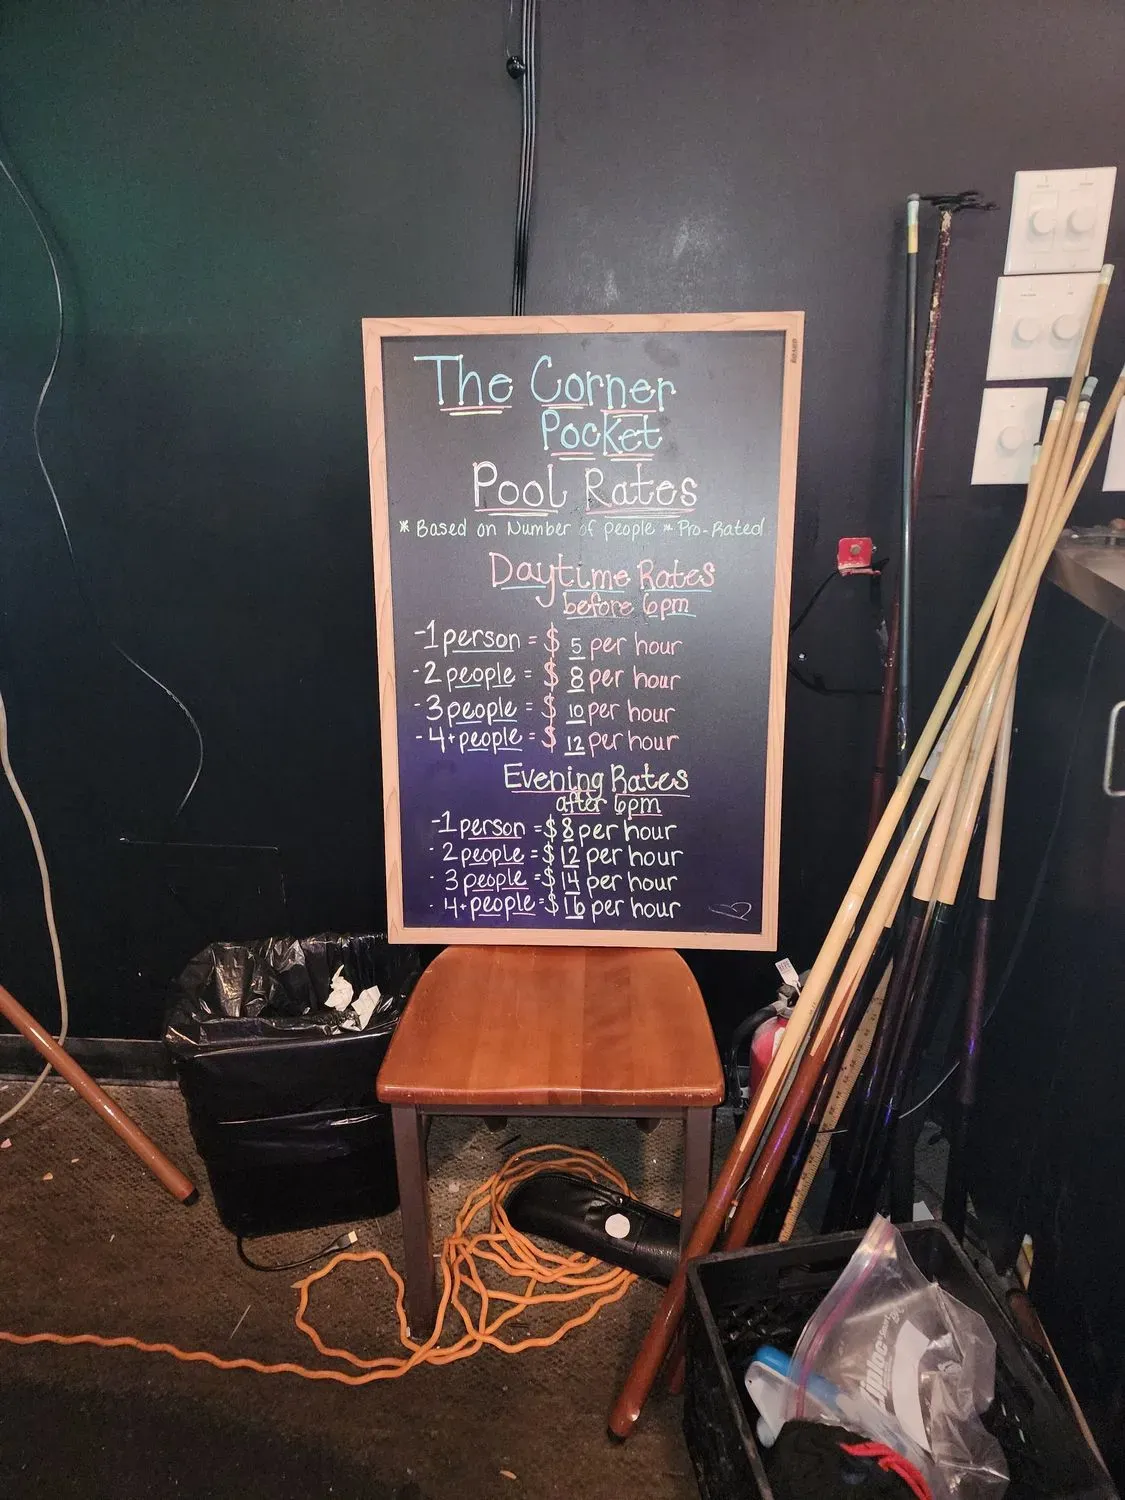 The Corner
Pocket
Pool Rates
* Based on Number of people * Pro-Rated
Daytime Rates
before 6pm
-1 person = $ 5 per hour
-2 people = $ 8 per hour
-3 people = $ 10 per hour
-4+people = $ 12 per hour
Evening Rates
after 6pm
-1 person =$8 per hour
- 2 people =$12 per hour
- 3 people =$14 per hour
- 4+people=$16 per hour
ziploc